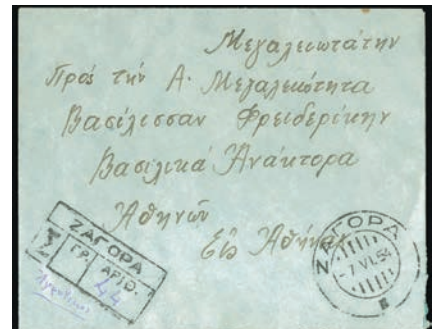 Μεγαλειωτάτην
Πρός τήν Α. Μεγαλειότητα
Βασίλισσαν Φρειδερίκην
Βασιλικά Ἀνάκτορα
Ἀθηνῶν
Εἰς Ἀθήνας
ΖΑΓΟΡΑ
Σ ΓΡ. ΑΡΙΘ.
44
ΖΑΓΟΡΑ
-7 VI. 54